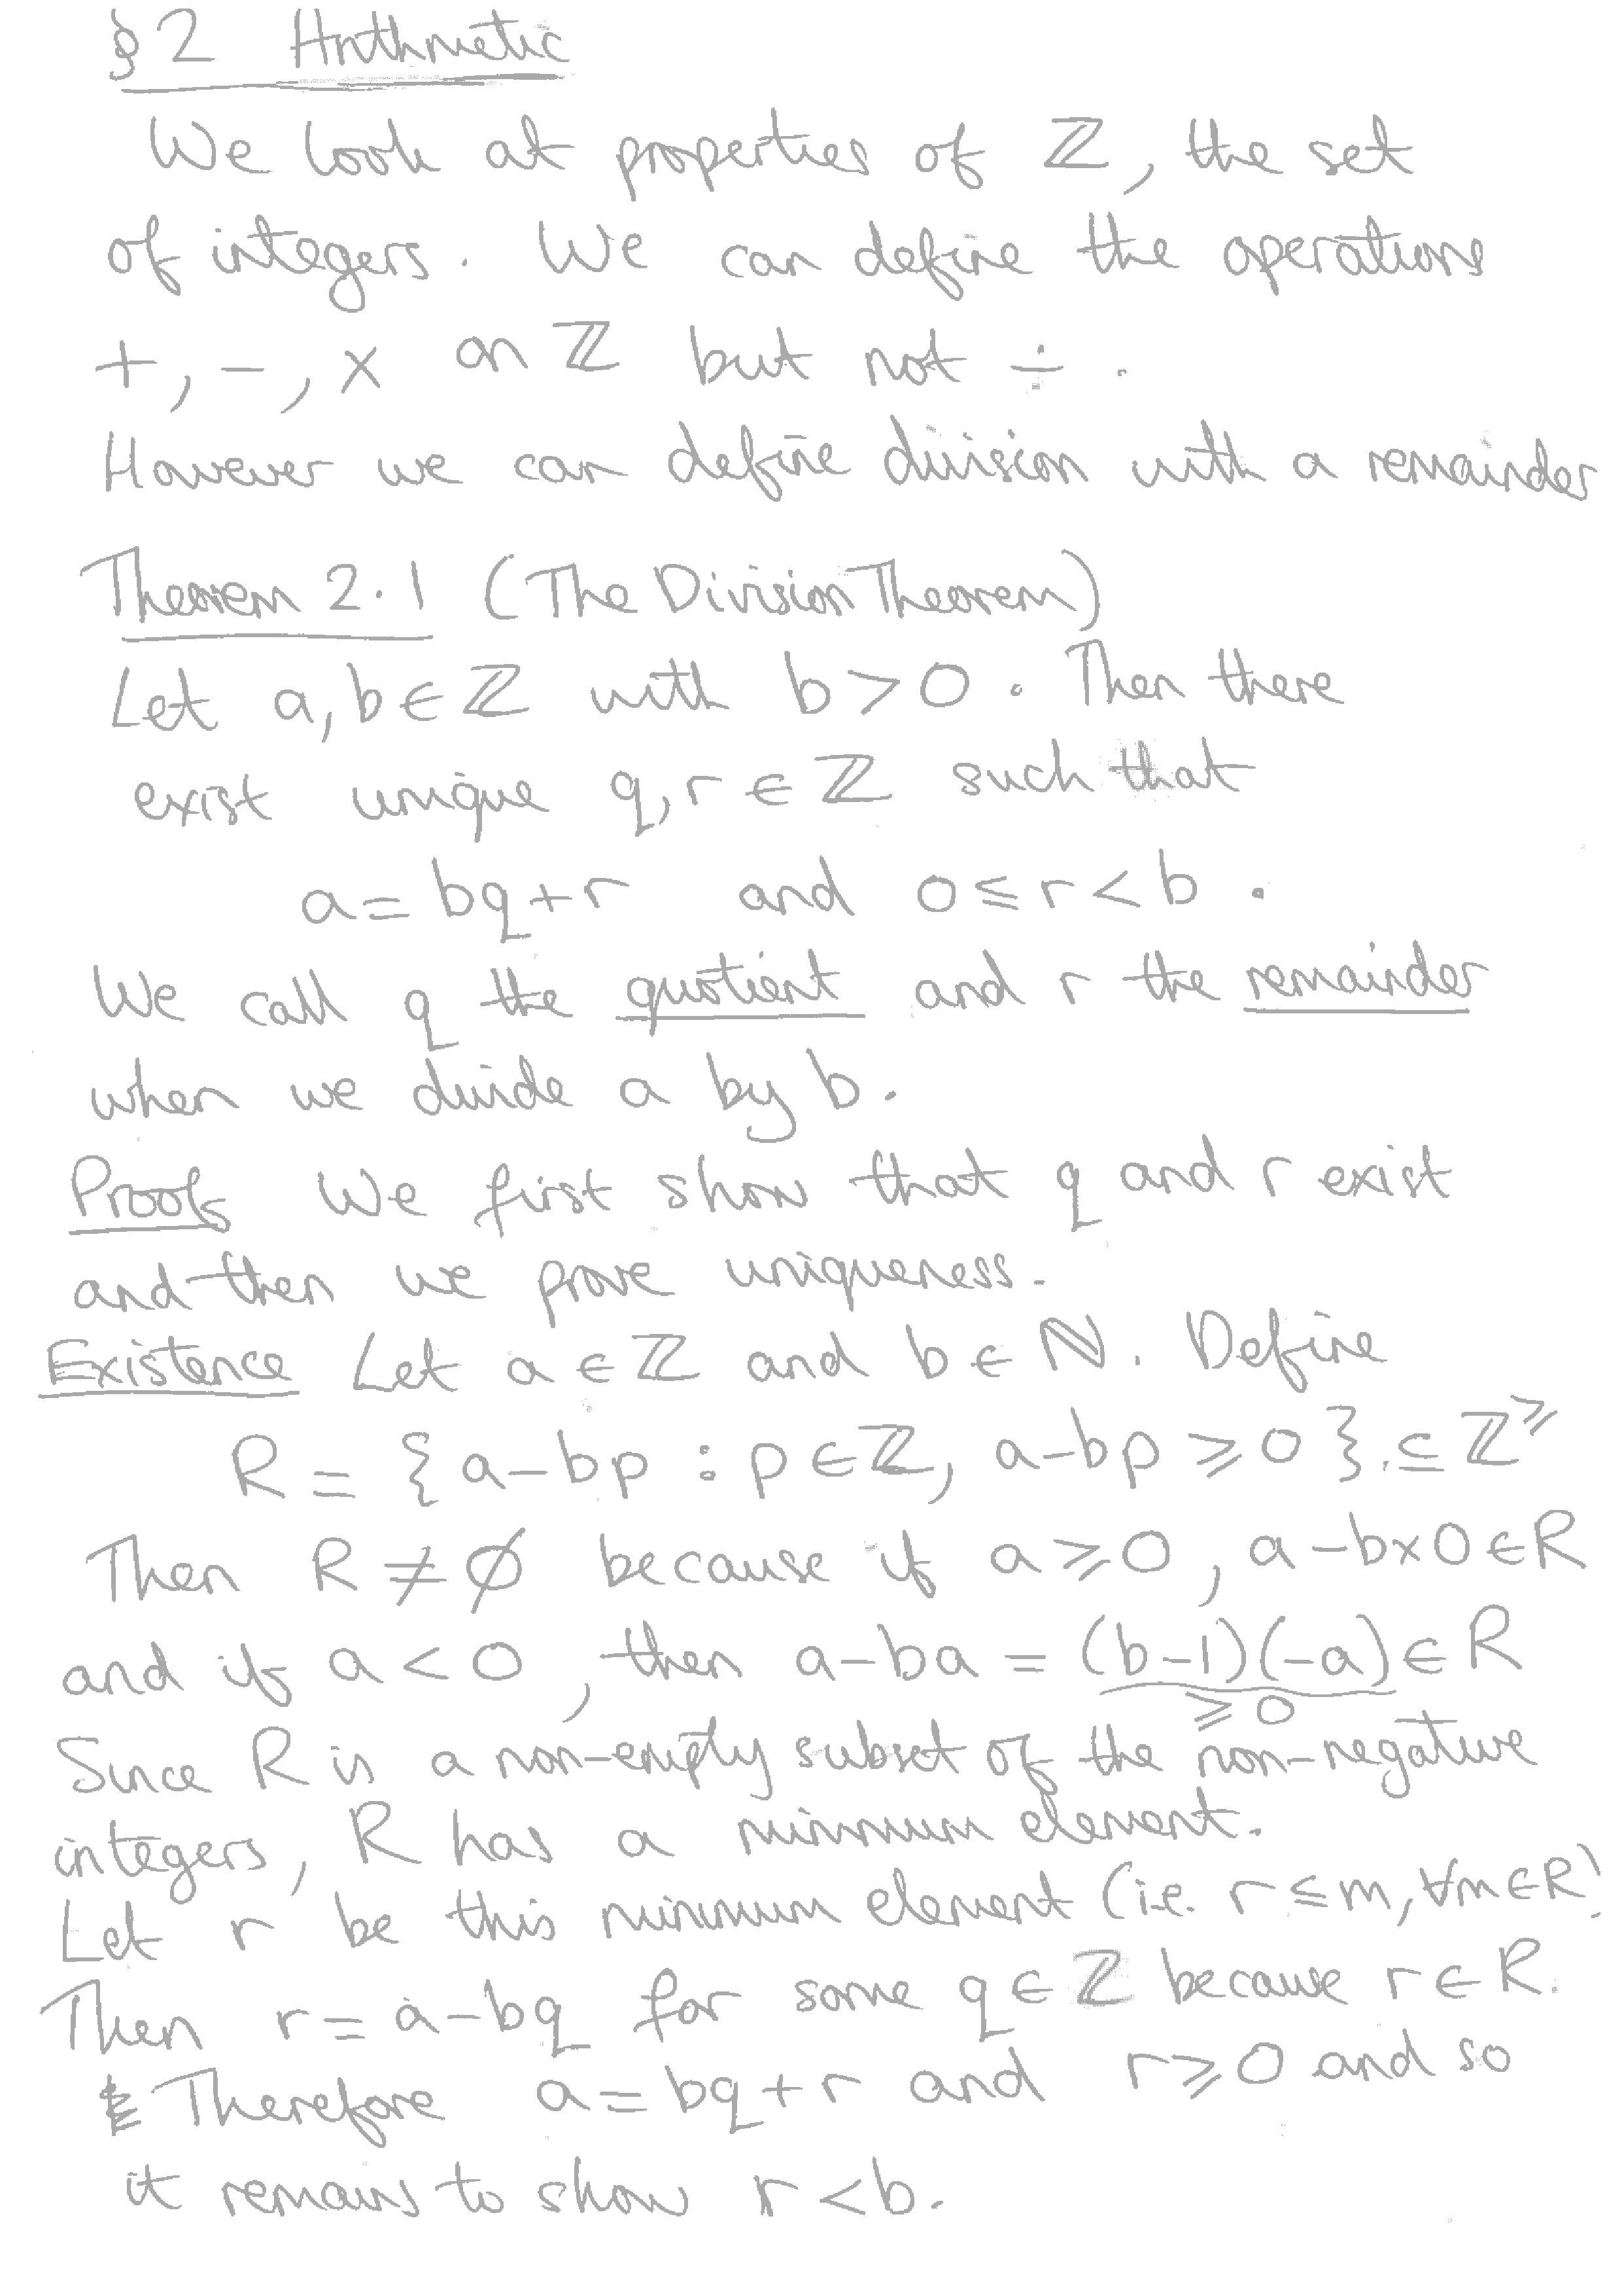 §2 Arithmetic
We look at properties of ℤ, the set
of integers. We can define the operations
+, -, × on ℤ but not ÷.
However we can define division with a remainder
Theorem 2.1 (The Division Theorem)
Let a, b ∈ ℤ with b > 0. Then there
exist unique q, r ∈ ℤ such that
a = bq + r and 0 ≤ r < b.
We call q the quotient and r the remainder
when we divide a by b.
Proof We first show that q and r exist
and then we prove uniqueness.
Existence Let a ∈ ℤ and b ∈ ℕ. Define
R = {a - bp : p ∈ ℤ, a - bp ⩾ 0}. ⊆ ℤ^⩾
Then R ≠ ∅ because if a ⩾ 0, a - b×0 ∈ R
and if a < 0, then a - ba = (b-1)(-a) ∈ R
⩾ 0
Since R is a non-empty subset of the non-negative
integers, R has a minimum element.
Let r be this minimum element (i.e. r ≤ m, ∀m ∈ R)
Then r = a - bq for some q ∈ ℤ because r ∈ R.
Therefore a = bq + r and r ⩾ 0 and so
it remains to show r < b.